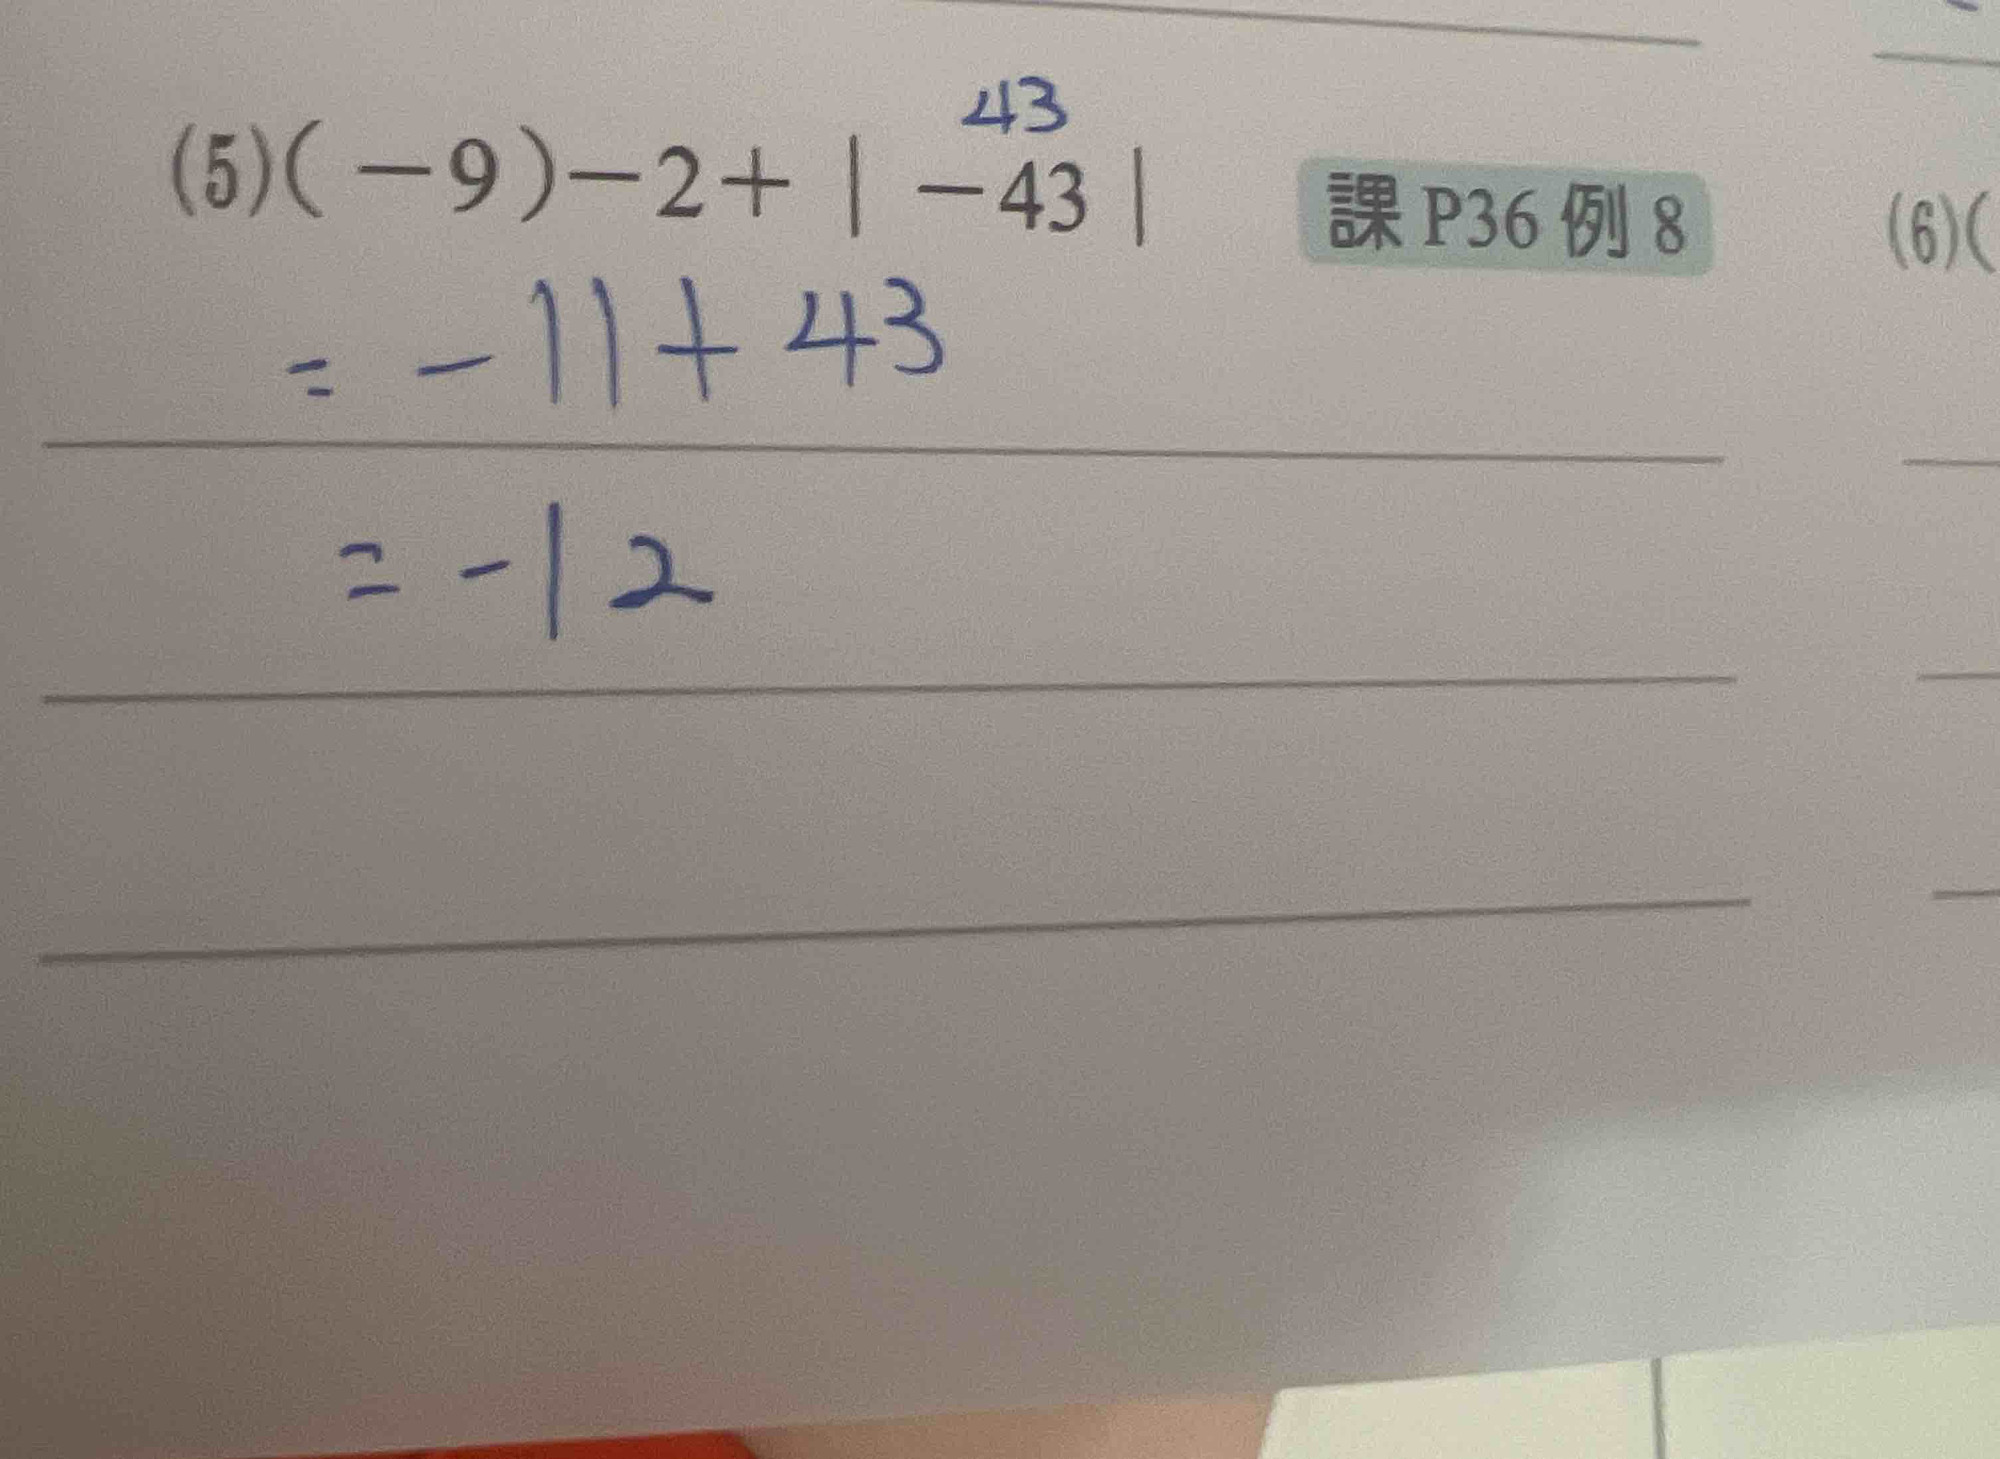 43
(5)(－9)－2＋|－43| 課P36例8 (6)(
= -11+43
= -12